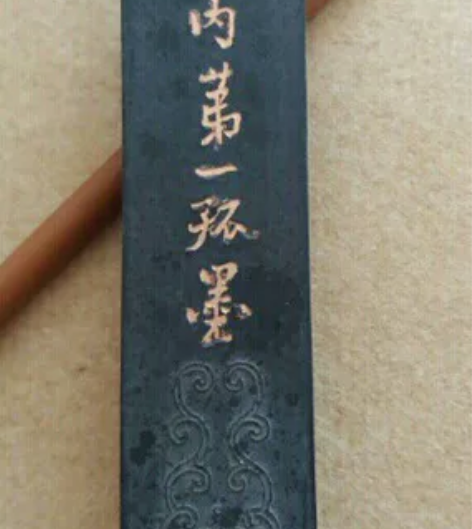 内第一孤墨